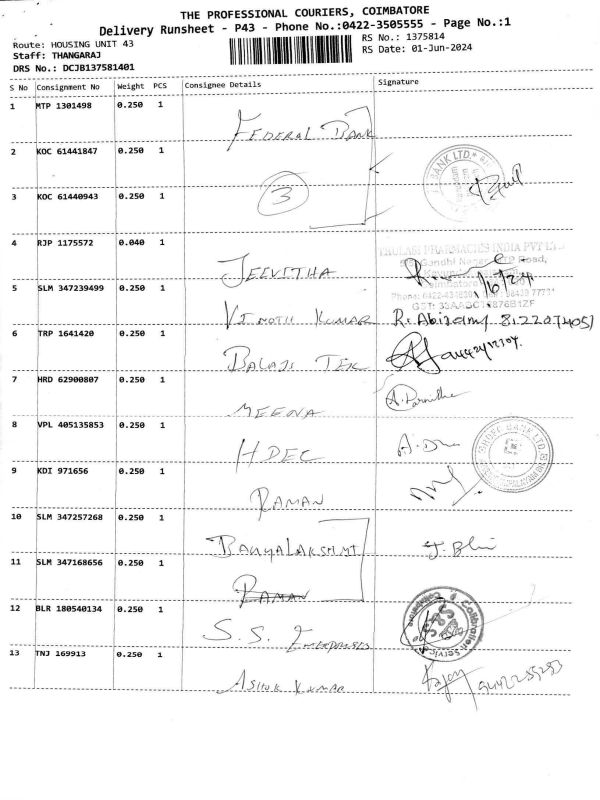 THE PROFESSIONAL COURIERS, COIMBATORE
Delivery Runsheet - P43 - Phone No.:0422-3505555 - Page No.:1
Route: HOUSING UNIT 43
RS No.: 1375814
Staff: THANGARAJ
RS Date: 01-Jun-2024
DRS No.: DCJB137581401
S No Consignment No Weight PCS Consignee Details Signature
1 MTP 1301498 0.250 1
FEDERAL BANK
2 KOC 61441847 0.250 1
BANK LTD.
3 KOC 61440943 0.250 1
3
4 RJP 1175572 0.040 1
THULASI PHARMACIES INDIA PVT LTD
Gandhi Nagar Road,
JEEVITHA
5 SLM 347239499 0.250 1
1/6/24
VINOTH KUMAR
6 TRP 1641420 0.250 1
BALAJI TEX
7 HRD 62900807 0.250 1
MEENA
8 VPL 405135853 0.250 1
BANK LTD
HDFC
9 KDI 971656 0.250 1
RAMAN
10 SLM 347257268 0.250 1
BAGYALAKSHMI
11 SLM 347168656 0.250 1
RAMAN
12 BLR 180540134 0.250 1
S.S. ENTERPRISES
13 TNJ 169913 0.250 1
ASHOK KUMAR
9442255253